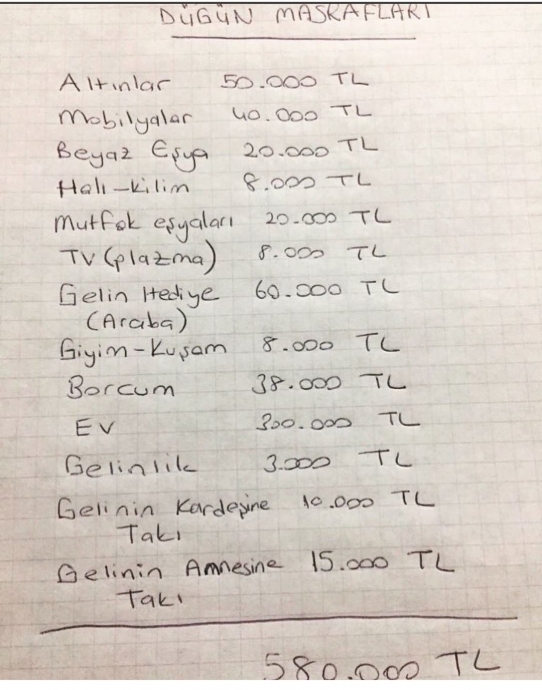 DÜĞÜN MASRAFLARI
Altınlar 50.000 TL
Mobilyalar 40.000 TL
Beyaz Eşya 20.000 TL
Halı-kilim 8.000 TL
Mutfak eşyaları 20.000 TL
TV (plazma) 8.000 TL
Gelin Hediye 60.000 TL
(Araba)
Giyim-Kuşam 8.000 TL
Borcum 38.000 TL
EV 300.000 TL
Gelinlik 3.000 TL
Gelinin Kardeşine 10.000 TL
Takı
Gelinin Annesine 15.000 TL
Takı
580.000 TL